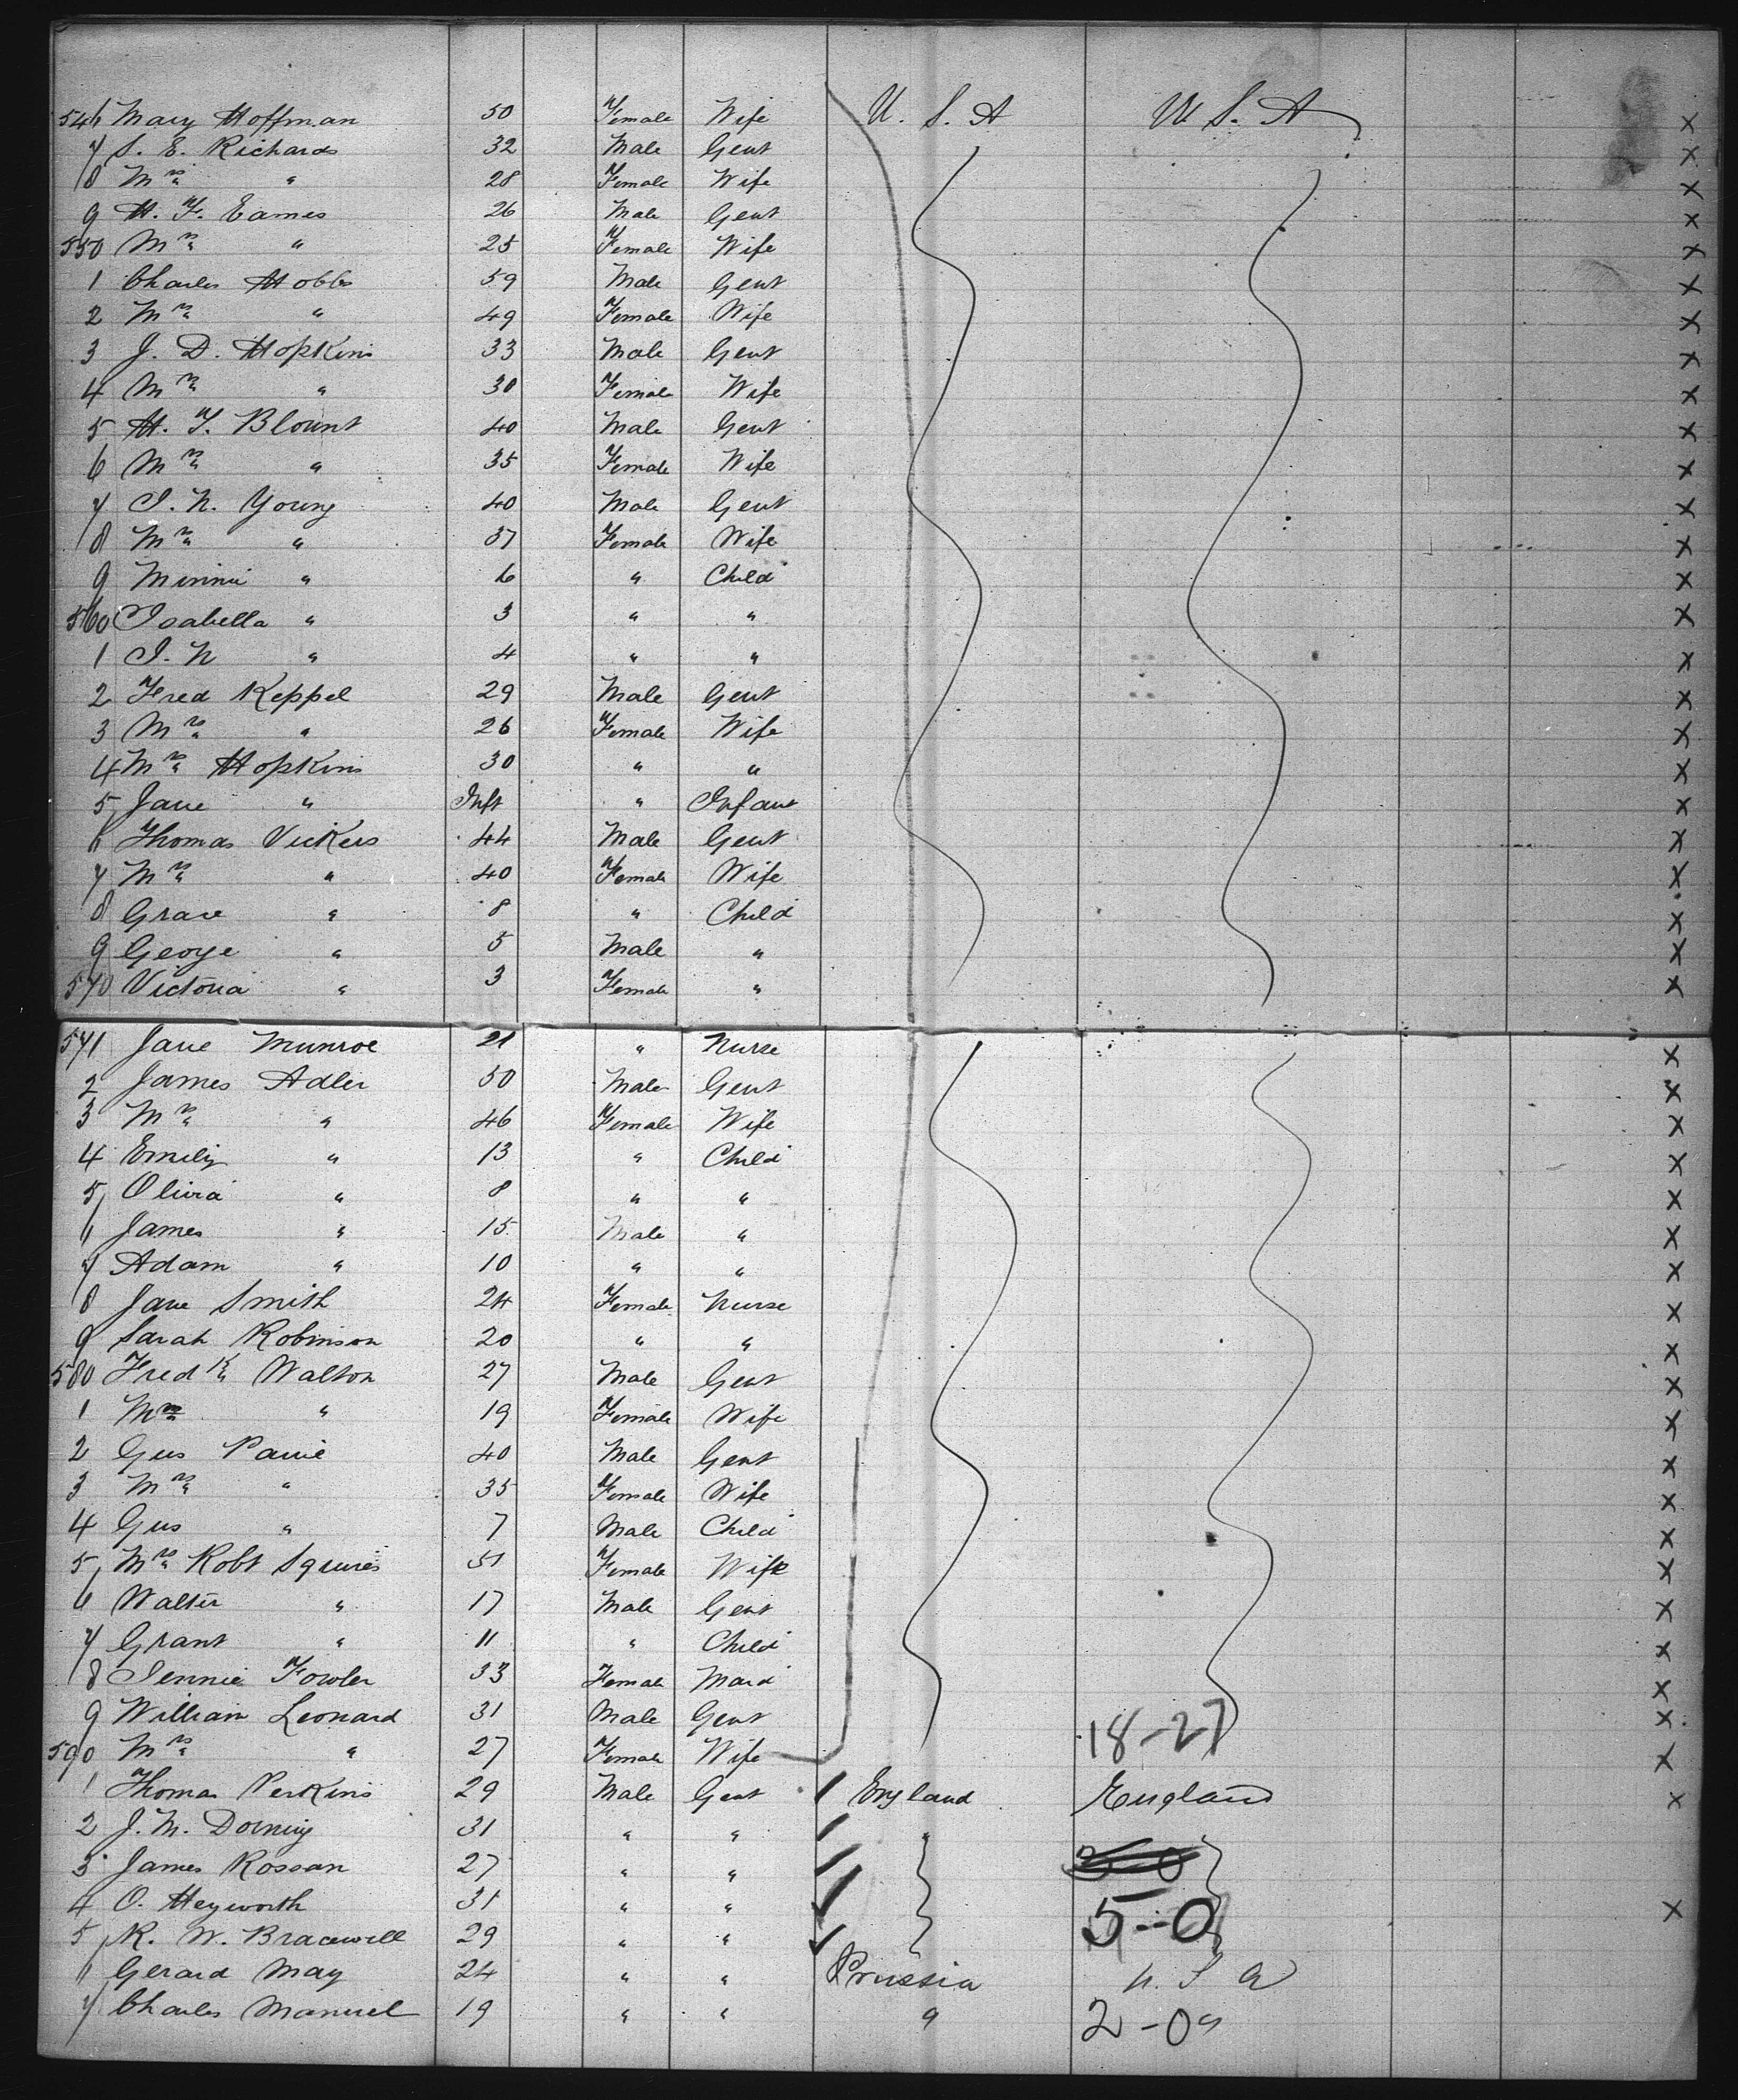 546 Mary Hoffman 50 Female Wife U. S. A U S. A x
7 S. E. Richards 32 Male Gent x
8 Mrs " 28 Female Wife x
9 H. F. Eames 26 Male Gent x
550 Mrs " 25 Female Wife x
1 Charles Hobbs 59 Male Gent x
2 Mrs " 49 Female Wife x
3 J. D. Hopkins 33 Male Gent x
4 Mrs " 30 Female Wife x
5 H. F. Blount 40 Male Gent x
6 Mrs " 35 Female Wife x
7 I. N. Young 40 Male Gent x
8 Mrs " 37 Female Wife x
9 Minnie " 6 " Child x
560 Isabella " 3 " " x
1 I. N " 4 " " x
2 Fred Keppel 29 Male Gent x
3 Mrs " 26 Female Wife x
4 Mrs Hopkins 30 " " x
5 Jane " Inft " Infant x
6 Thomas Vickers 44 Male Gent x
7 Mrs " 40 Female Wife x
8 Grace " 8 " Child x
9 George " 5 Male " x
570 Victoria " 3 Female " x
571 Jane Munroe 21 " Nurse x
2 James Adler 50 Male Gent x
3 Mrs " 46 Female Wife x
4 Emily " 13 " Child x
5 Olivia " 8 " " x
6 James " 15 Male " x
7 Adam " 10 " " x
8 Jane Smith 24 Female Nurse x
9 Sarah Robinson 20 " " x
580 Fredk Walton 27 Male Gent x
1 Mrs " 19 Female Wife x
2 Gus 40 Male Gent x
3 Mrs " 35 Female Wife x
4 Gus " 7 Male Child x
5 Mrs Robt Squires 51 Female Wife x
6 Walter " 17 Male Gent x
7 Grant " 11 " Child x
8 Jennie Fowler 33 Female Maid x
9 William Leonard 31 Male Gent x
590 Mrs " 27 Female Wife 18-27 x
1 Thomas Perkins 29 Male Gent England England x
2 J. M. Dorning 31 " " "
3 James Rossan 27 " "
4 O. Heyworth 31 " " 5-0 x
5 R. W. Bracewell 29 " "
6 Gerard May 24 " " Prussia U. S A
7 Charles Manuel 19 " " " 2-0 "